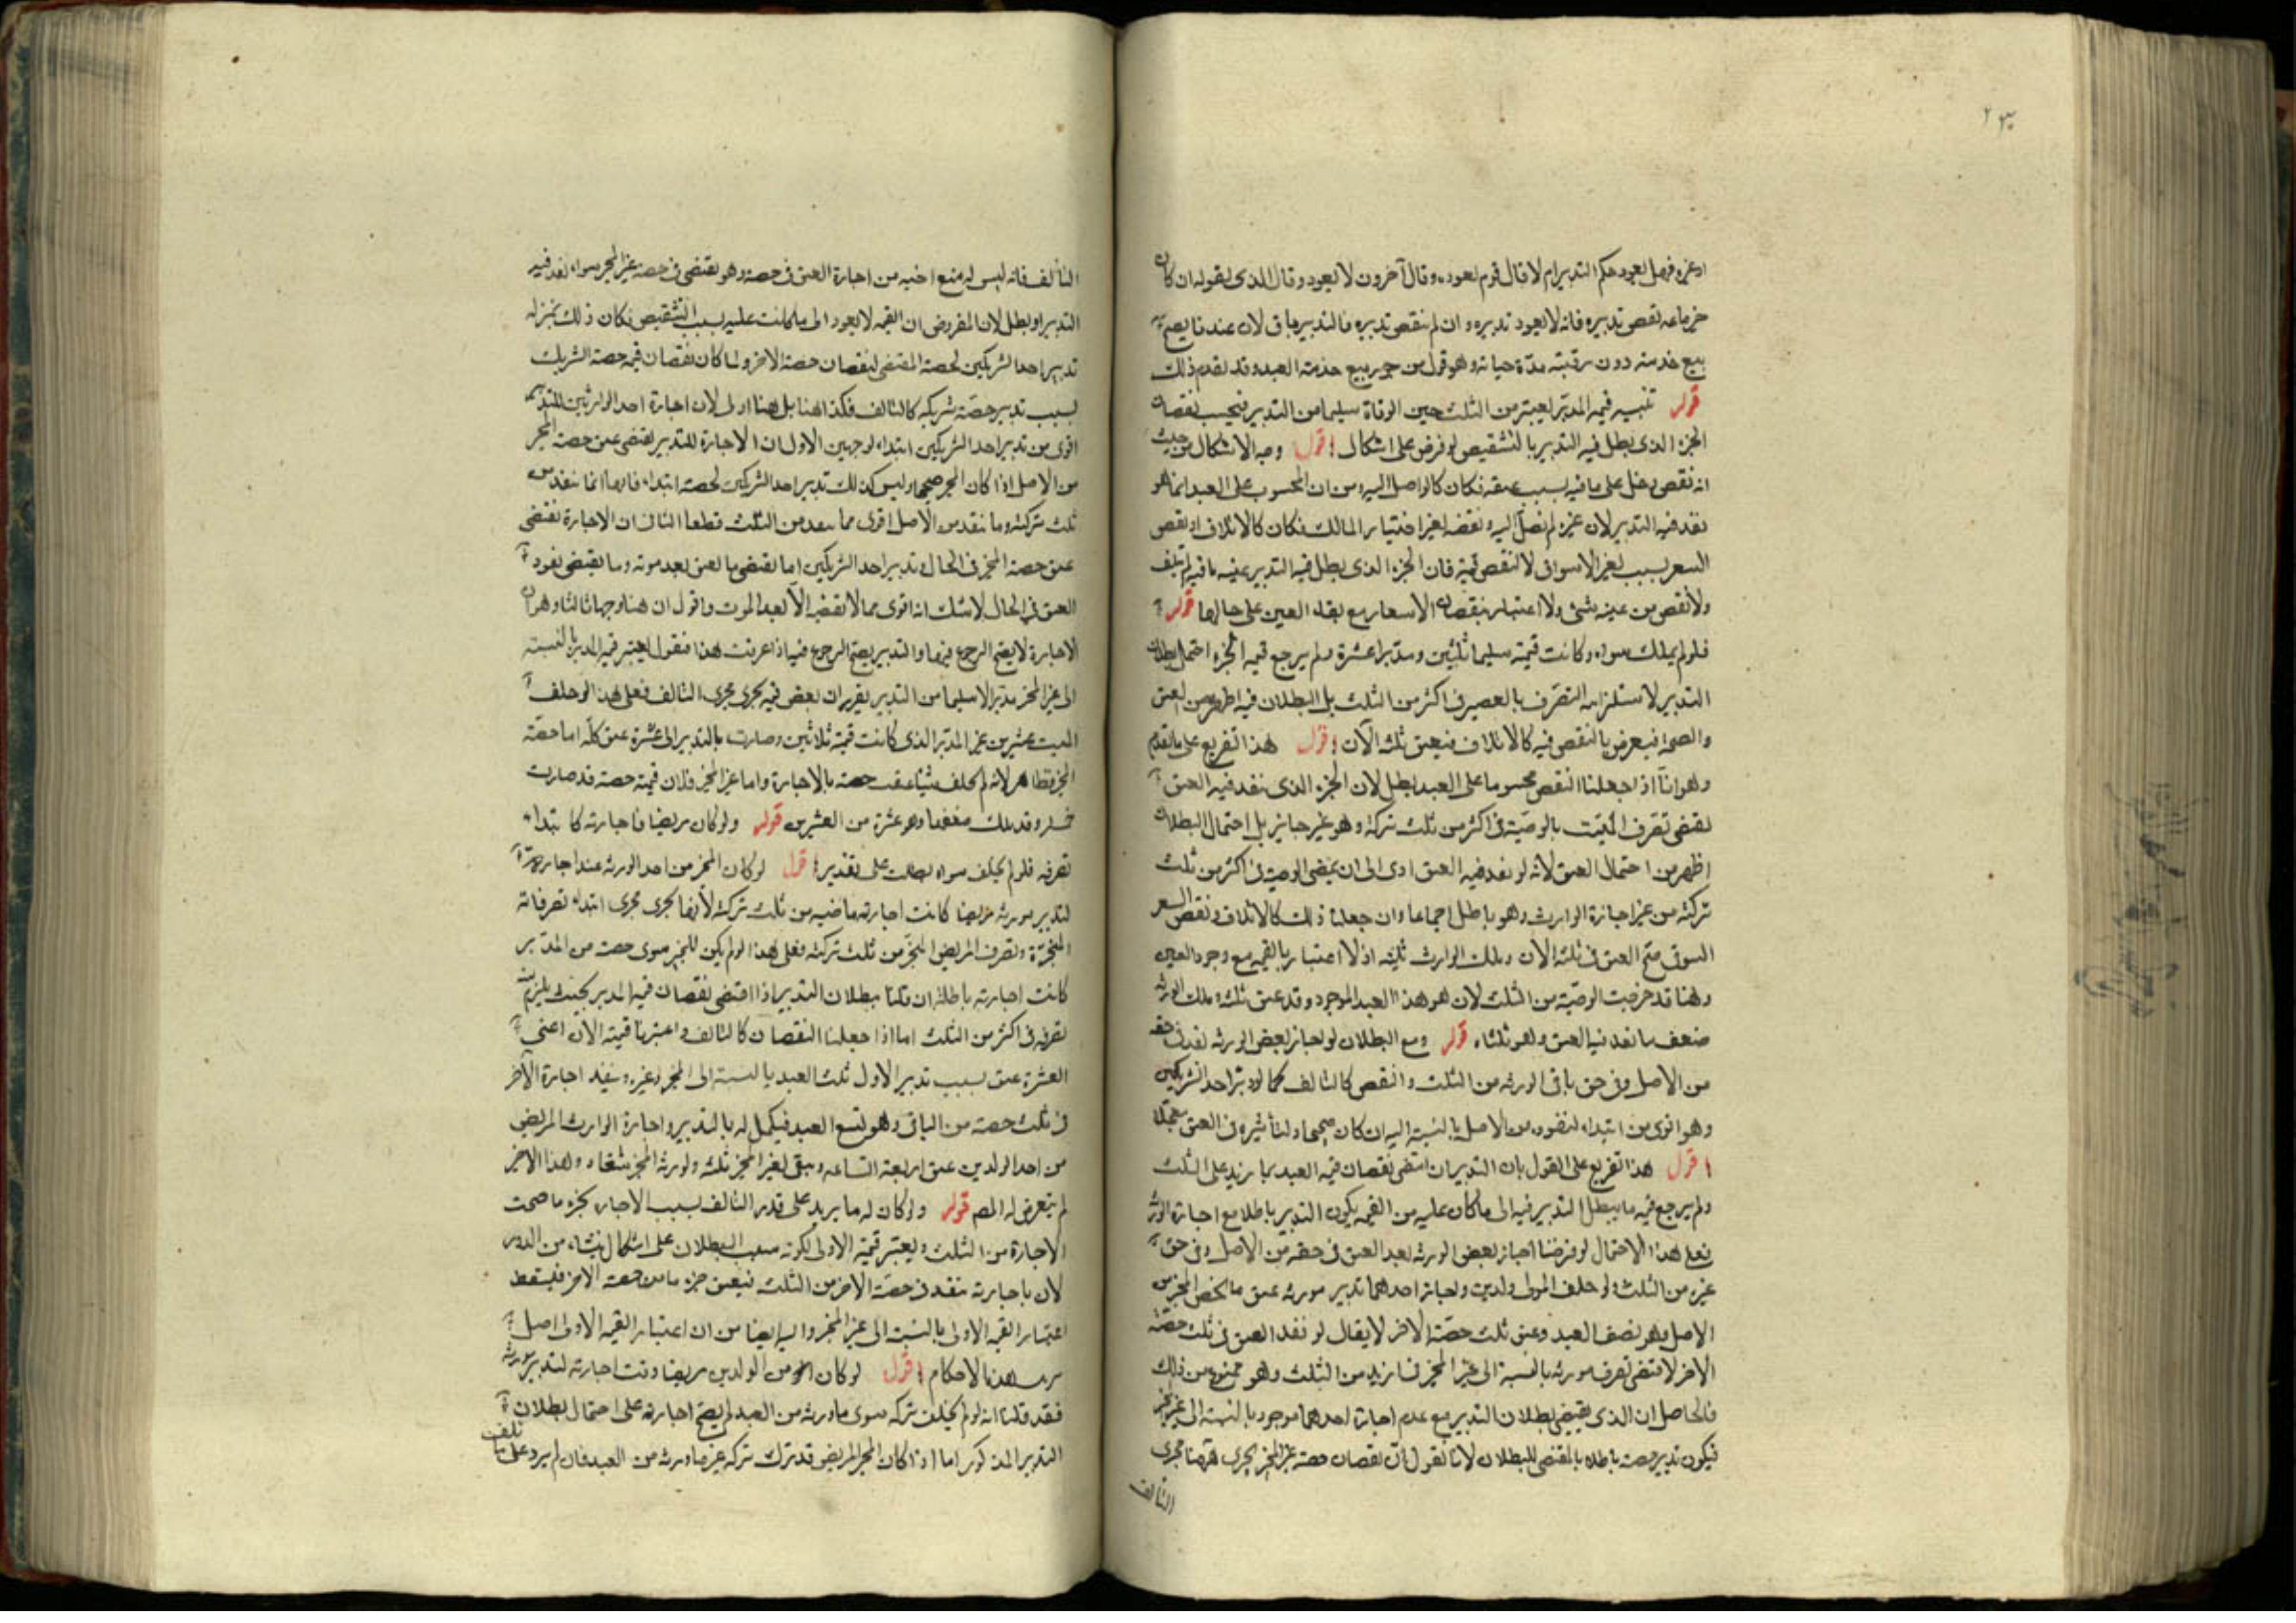 او غيره فهل يعود حكم التدبير ام لا قال قوم يعود وقال آخرون لا يعود وقال الذى يقوله ان كان
تدبيره فانه لا يعود تدبيره وان لم ينقص تدبيره فالتدبير باق لان عندنا يصح
بيع خدمته دون رقبته مدة حياته وهو قول من يجوز بيع خدمة العبد وقد تقدم ذلك
قوله تنبيه قيمة المدبر يعتبر من الثلث حين الوفاة سليما من التدبير فيحسب نقصان
الجزء الذى بطل فيه التدبير بالتشقيص لو فرض على اشكال اقول وجه الاشكال من حيث
انه نقص دخل على مافيه بسبب عتقه فكان كالواصل اليه ومن ان المحسوب على العبد انما هو
نفذ فيه التدبير لان غيره لم يصل اليه ونقصه لغير اختيار المالك فكان كالاتلاف او نقص
السعر بسبب تغير الاسواق لا لنقص قيمة فان الجزء الذى بطل فيه التدبير عينه باقية لم يتلف
ولا نقص من عينه شئ ولا اعتبار بنقصان الاسعار مع بقاء العين على حالها قوله
فلو لم يملك سواه وكانت قيمته سليما ثلثين ومدبرا عشرة ولم يرجع قيمة الجزء احتمل بطلان
التدبير لاستلزامه التصرف فى اكثر من الثلث بل البطلان فيه اظهر من العتق
والصحة فيعرض بالنقص فيه كالاتلاف فيعتق ثلثه الآن اقول هذا تفريع على ما تقدم
وهو انا اذا جعلنا النقص محسوبا على العبد بطل لان الجزء الذى نفذ فيه العتق
يقتضى تصرف الميت بالوصية فى اكثر من ثلث تركته وهو غير جايز بل احتمال البطلان
اظهر من احتمال العتق لانه لو نفذ فيه العتق ادى الى ان يمضى الوصية فى اكثر من ثلث
تركته من غير اجازة الوارث وهو باطل اجماعا وان جعلنا ذلك كالاتلاف ونقص السعر
السوق صح العتق فى ثلثه الآن وملك الوارث ثلثيه اذ لا اعتبار بالقيمة مع وجود العين
وهنا قد خرجت الوصية من الثلث لان هو هذا العبد الموجود وقد عتق ثلثه وملك الورثة
ضعف ما نفذ فيه العتق وهو ثلثاه قوله ومع البطلان لو اجاز بعض الورثة نفذ فى حقه
من الاصل وفى حق باقى الورثة من الثلث والنقص كالتالف كما لو دبر احد الشريكين
وهو اقوى من ابتداء لنفوذه من الاصل بالنسبة اليه ان كان صحيحا ولتأثيره فى العتق معجلا
اقول هذا تفريع على القول بان التدبير ان اقتضى نقصان قيمة العبد بما يزيد على الثلث
ولم يرجع قيمة ما يبطل التدبير فيه الى ما كان عليه من القيمة يكون التدبير باطلا مع اجازة الوارث
فعلى هذا الاحتمال لو فرضنا اجاز بعض الورثة بعد العتق فى حقه من الاصل وفى حق
غيره من الثلث ولو خلف المولى ولدين واجاز احدهما تدبير مورثه عتق ما يخص المجيز من
الاصل وهو نصف العبد وعتق ثلث حصة الآخر لا يقال لو نفذ العتق فى ثلث حصة
الآخر لاقتضى تصرف مورثه بالنسبة الى غير المجيز فى ازيد من الثلث وهو ممنوع من ذلك
فالحاصل ان الذى يقتضى بطلان التدبير مع عدم اجازة احدهما موجود بالنسبة الى غير المجيز
فيكون تدبير حصته باطلا بالمقتضى للبطلان لانا نقول ان نقصان حصة غير المجيز يجرى هاهنا مجرى
التالف
التالف فانه ليس له منع اخيه من اجازة العتق فى حصته وهو يقتضى فى حصة غير المجيز سواء نفذ فيه
التدبير او بطل لان المفروض ان القيمة لا يعود الى ما كانت عليه بسبب التشقيص فكان ذلك بمنزلة
تدبير احد الشريكين لحصته المقتضى لنقصان حصة الآخر ولما كان نقصان قيمة حصة الشريك
بسبب تدبير حصة شريكه كالتالف فكذا هنا بل هنا اولى لان اجازة احد الوارثين للتدبير
اقوى من تدبير احد الشريكين ابتداء لوجهين الاول ان الاجازة للتدبير يقتضى عتق حصة المجيز
من الاصل اذا كان المجيز صحيحا وليس كذلك تدبير احد الشريكين لحصته ابتداء فانها انما ينفذ من
ثلث تركته وما نفذ من الاصل اقوى مما يعد من الثلث قطعا الثانى ان الاجازة يقتضى
عتق حصة المجيز فى الحال وتدبير احد الشريكين انما يقتضى بالعتق بعد موته وما يقتضى نفوذ
العتق فى الحال لا شك انه اقوى مما لا يقتضيه الا بعد الموت واقول ان هنا وجها ثالثا وهو ان
الاجازة لا يصح الرجوع فيها والتدبير يصح الرجوع فيه اذا عرفت هذا فنقول يعتبر قيمة المدبر بالنسبة
الى غير المجيز مدبرا لا سليما من التدبير بتقدير ان بعض قيمته يجرى مجرى التالف فعلى هذا لو خلف
الميت عشرين غير المدبر الذى كانت قيمته ثلاثين وصارت بالتدبير الى عشرة عتق كله اما حصة
المجيز فظاهر لانه لم يخلف شيئا عتقت حصته بالاجازة واما غير المجيز فلان قيمة حصته قد صارت
خمسة وقد ملك ضعفها وهو عشرة من العشرين قوله ولو كان مريضا فاجازته كابتداء
تصرفه فلو لم يخلف سواه بطلت على تقدير اقول لو كان المجيز من احد الورثة عند اجازته
لتدبير مورثه مريضا كانت اجازته ماضية من ثلث تركته لانها يجرى مجرى ابتداء تصرفاته
المنجزة وتصرف المريض المنجز من ثلث تركته فعلى هذا لو لم يكن للمجيز سوى حصته من المدبر
كانت اجازته باطلة ان قلنا ببطلان التدبير اذا اقتضى نقصان قيمة المدبر بحيث يلزم منه
تصرفه فى اكثر من الثلث اما اذا جعلنا النقصان كالتالف واعتبرنا قيمته الآن اعنى
العشرة عتق بسبب تدبير الاول ثلث العبد بالنسبة الى المجيز وغيره وينفذ اجازة الآخر
فى ثلث حصته من الباقى وهو تسع العبد فيكمل له بالتدبير واجازة الوارث المريض
من احد الولدين عتق اربعة اتساعه ويبقى لغير المجيز ثلثه ولورثة المجيز تسعاه وهذا الاخير
لم يتعرض له المصـ قوله ولو كان له ما يزيد على قدر التالف بسبب الاجازة بجزء ما صحت
الاجازة من الثلث ويعتبر قيمته الاولى لكونه سبب البطلان على اشكال ينشأ من الدور
لان باجازته ينفذ فى حصة الآخر من الثلث فيعتق جزء ما من حصة الآخر فيسقط
اعتبار القيمة الاولى بالنسبة الى غير المجيز واليه ايضا من ان اعتبار القيمة الاولى اصل
هذه الاحكام اقول لو كان المجيز من الولدين مريضا وقت اجازته لتدبير مورثه
فقد قلنا انه لو لم يخلف تركة سوى ما ورثه من العبد لم يصح اجازته على احتمال بطلان
التدبير المذكور اما اذا كان المجيز المريض قد ترك تركة غير ما ورثه من العبد فان لم يزد على ما
تلف